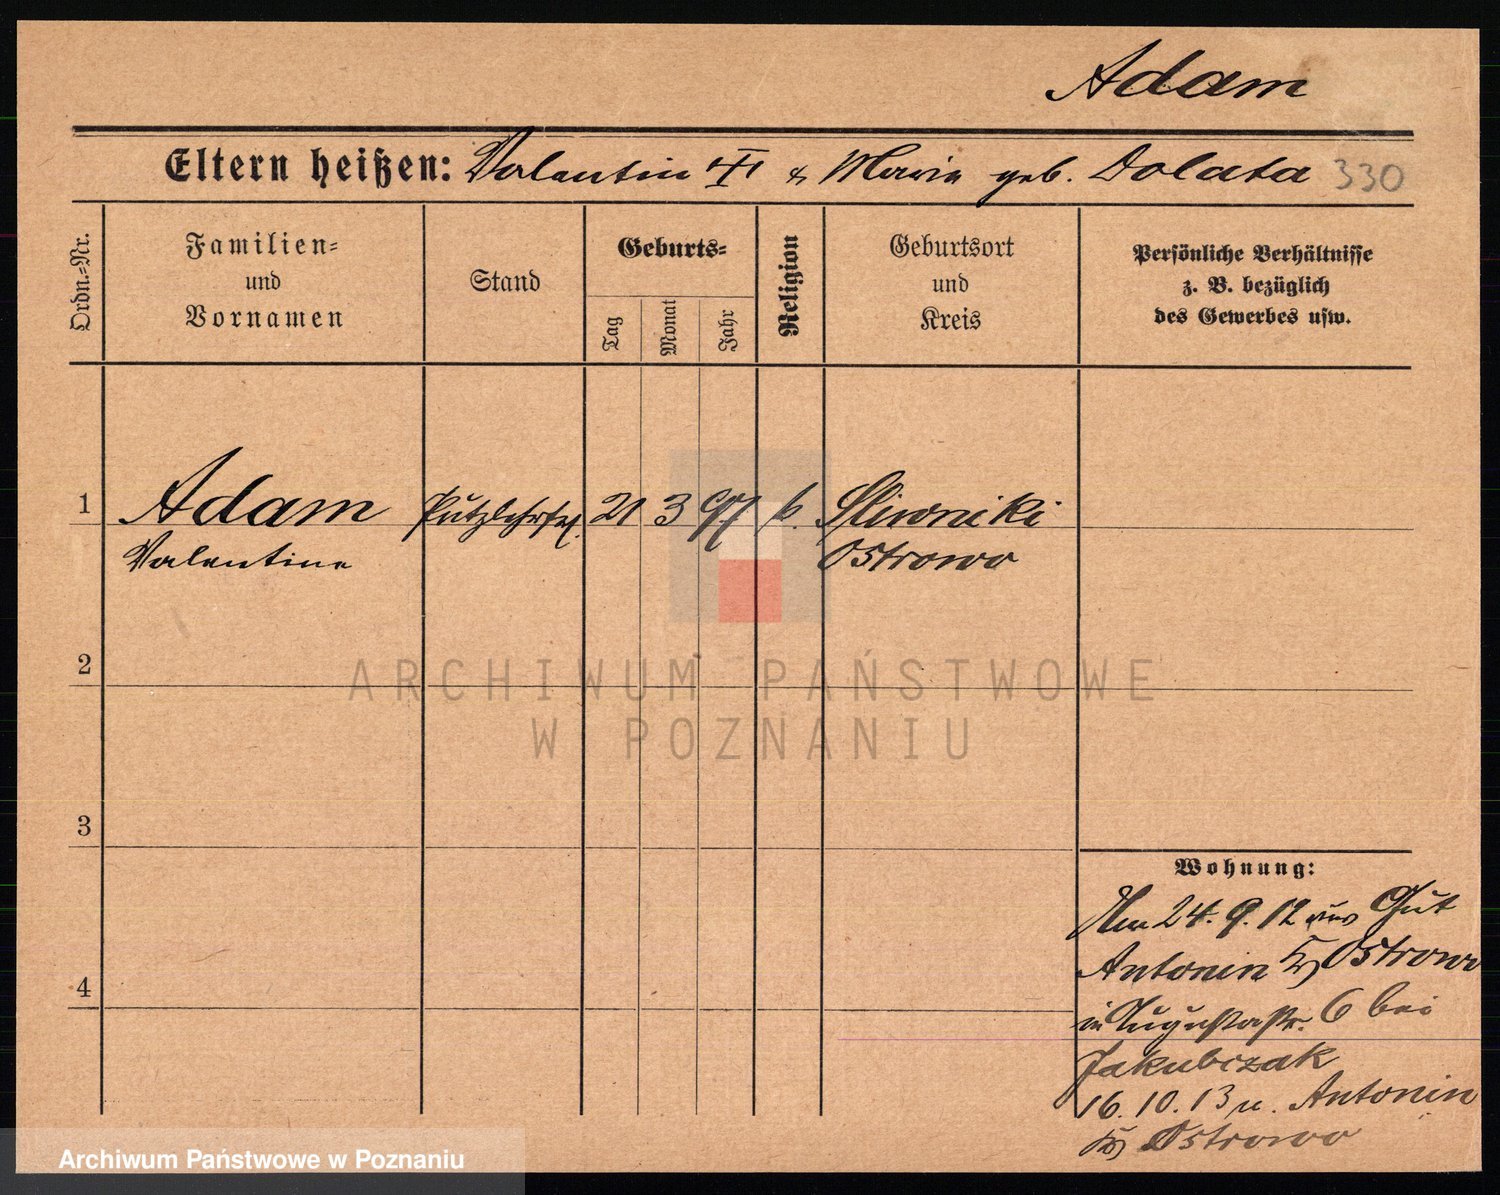 Adam
Eltern heißen: Valentin & Marie geb. Dolata 330
Ordn.-Nr.
Familien-
und
Vornamen
Stand
Geburts-
Tag
Monat
Jahr
Religion
Geburtsort
und
Kreis
Persönliche Verhältnisse
z. B. bezüglich
des Gewerbes usw.
1 Adam Putzlehrfrl. 21 3 97 k. Sliwniki
Valentine Ostrowo
2
ARCHIWUM PAŃSTWOWE
W POZNANIU
3
4
Wohnung:
Am 24. 9. 12 aus Gut
Antonin Ostrowo
in Augustastr. 6 bei
Jakubczak
16. 10. 13 n. Antonin
Ostrowo
Archiwum Państwowe w Poznaniu